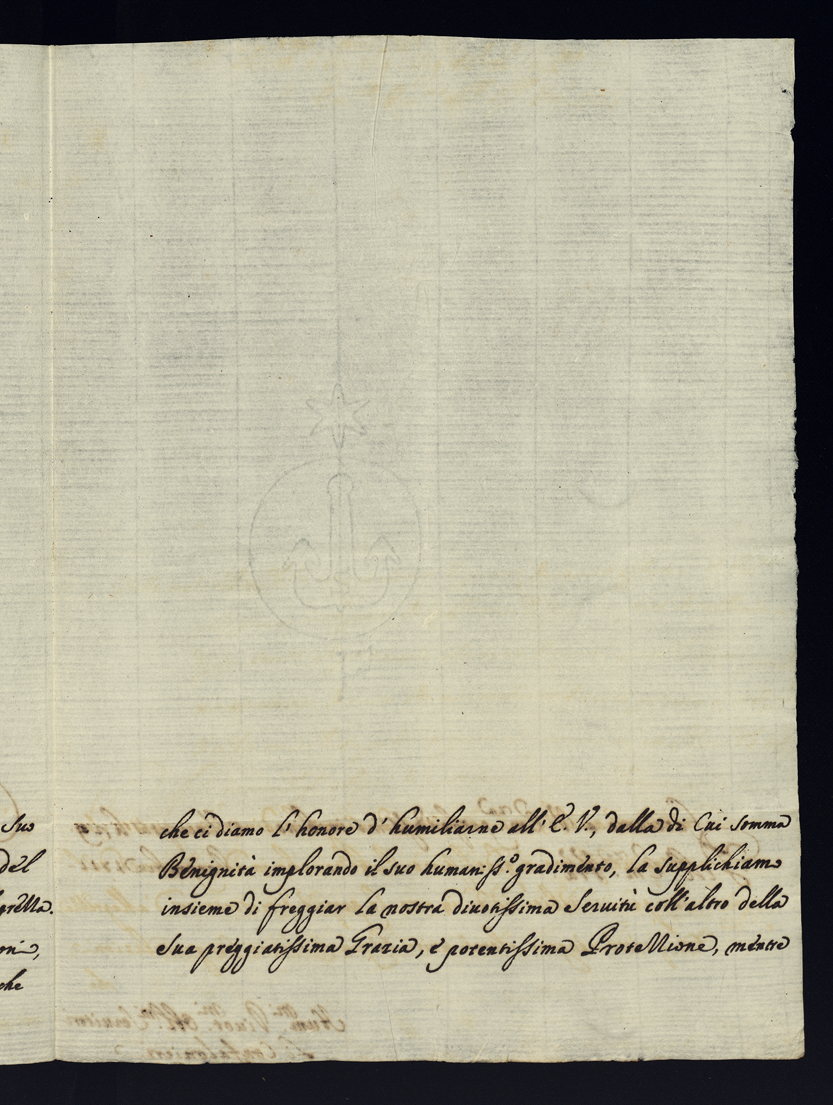 suo
del
che
che ci diamo l'honore d'humiliarne all'E. V., dalla di Cui somma
Benignità implorando il suo humaniss.º gradimento, la supplichiamo
insieme di freggiar la nostra diuotissima Seruitù coll'altro della
sua preggiatissima Grazia, e potentissima Protettione, mentre